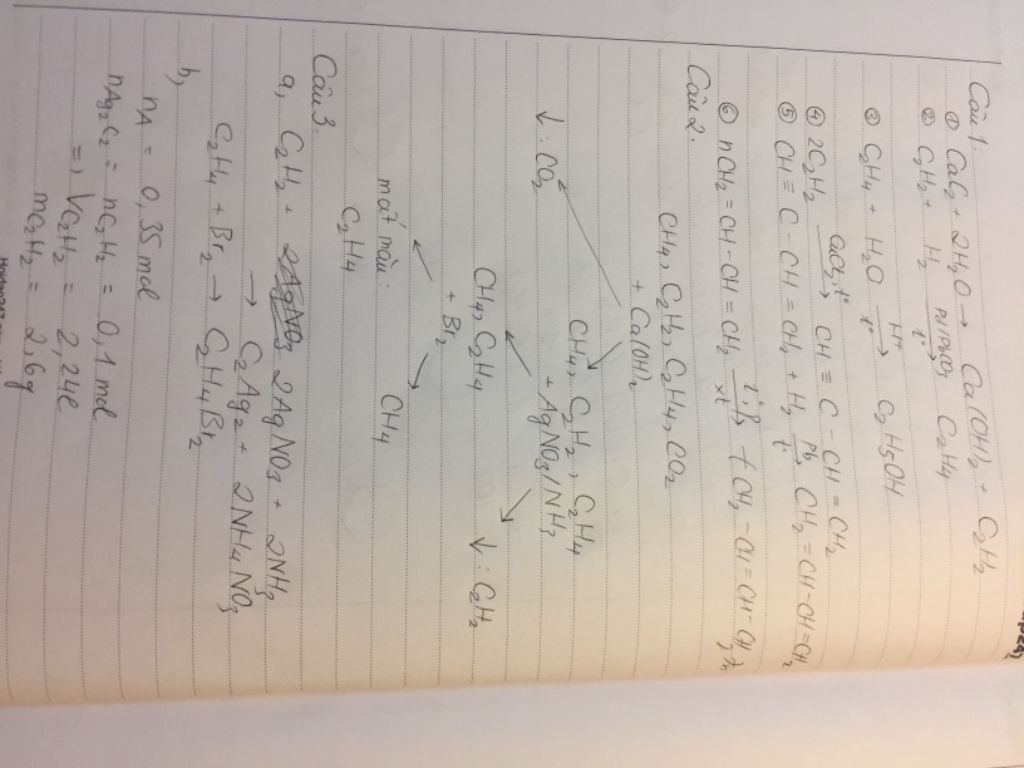 Câu 1:
① CaC₂ + 2H₂O → Ca(OH)₂ + C₂H₂
② C₂H₂ + H₂ Pd/PbCO₃ t° → C₂H₄
③ C₂H₄ + H₂O H⁺ t° → C₂H₅OH
④ 2C₂H₂ CuCl₂, t° → CH ≡ C - CH = CH₂
⑤ CH ≡ C - CH = CH₂ + H₂ Pb t° → CH₂ = CH - CH = CH₂
⑥ nCH₂ = CH - CH = CH₂ t°, P xt → (CH₂ - CH = CH - CH₂)n
Câu 2.
CH₄, C₂H₂, C₂H₄, CO₂
+ Ca(OH)₂
↓: CO₂ CH₄, C₂H₂, C₂H₄
+ AgNO₃/NH₃
CH₄, C₂H₄ ↓: C₂H₂
+ Br₂
mất màu: CH₄
C₂H₄
Câu 3.
a, C₂H₂ + 2AgNO₃ 2AgNO₃ + 2NH₃
→ C₂Ag₂ + 2NH₄NO₃
C₂H₄ + Br₂ → C₂H₄Br₂
b,
nA = 0,35 mol
nAg₂C₂ = nC₂H₂ = 0,1 mol
=> VC₂H₂ = 2,24l
mC₂H₂ = 2,6g